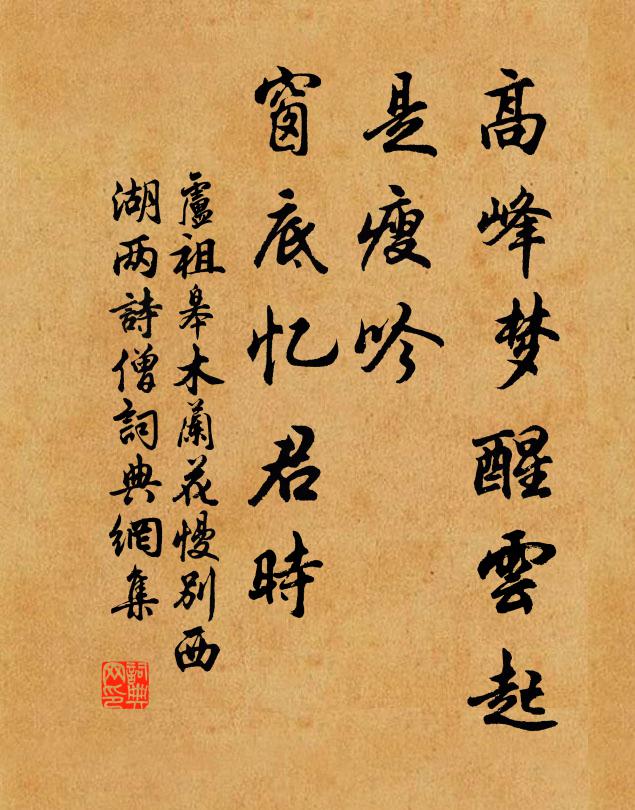 高峰梦醒雲起
是瘦吟
窗底忆君時
盧祖皋木蘭花慢别西
湖两詩僧詞典網集
詞典网印